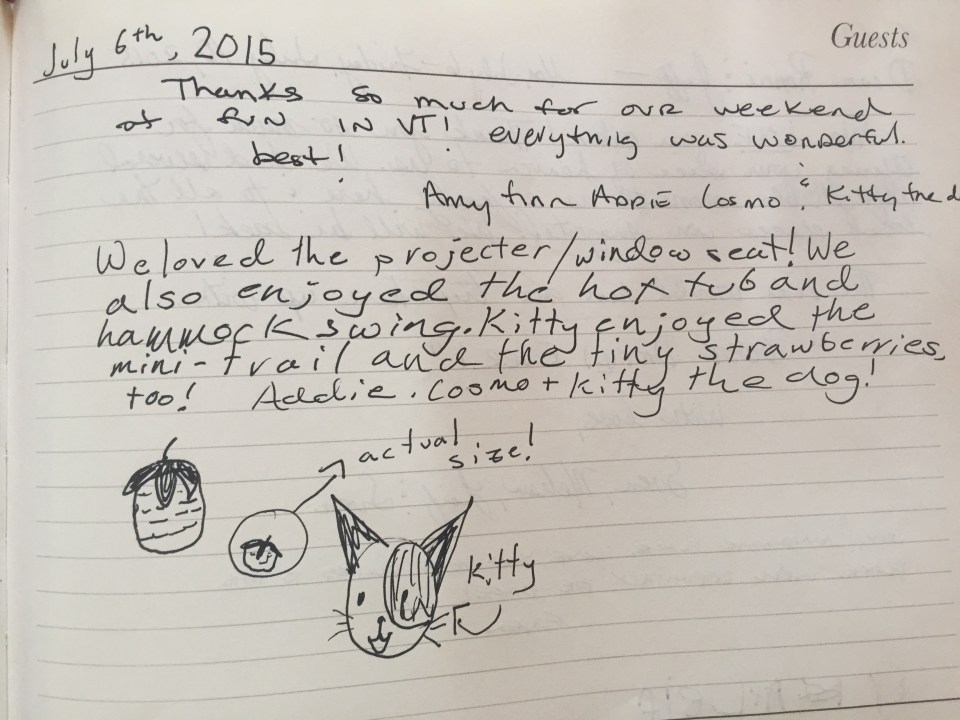 Guests
July 6th, 2015
Thanks so much for our weekend
of fun IN VT! everything was wonderful.
best!
Amy Finn ADDIE Cosmo & Kitty the d
We loved the projecter/window seat! We
also enjoyed the hot tub and
hammock swing. Kitty enjoyed the
mini-trail and the tiny strawberries,
too! Addie. Cosmo + Kitty the dog!
actual
size!
Kitty